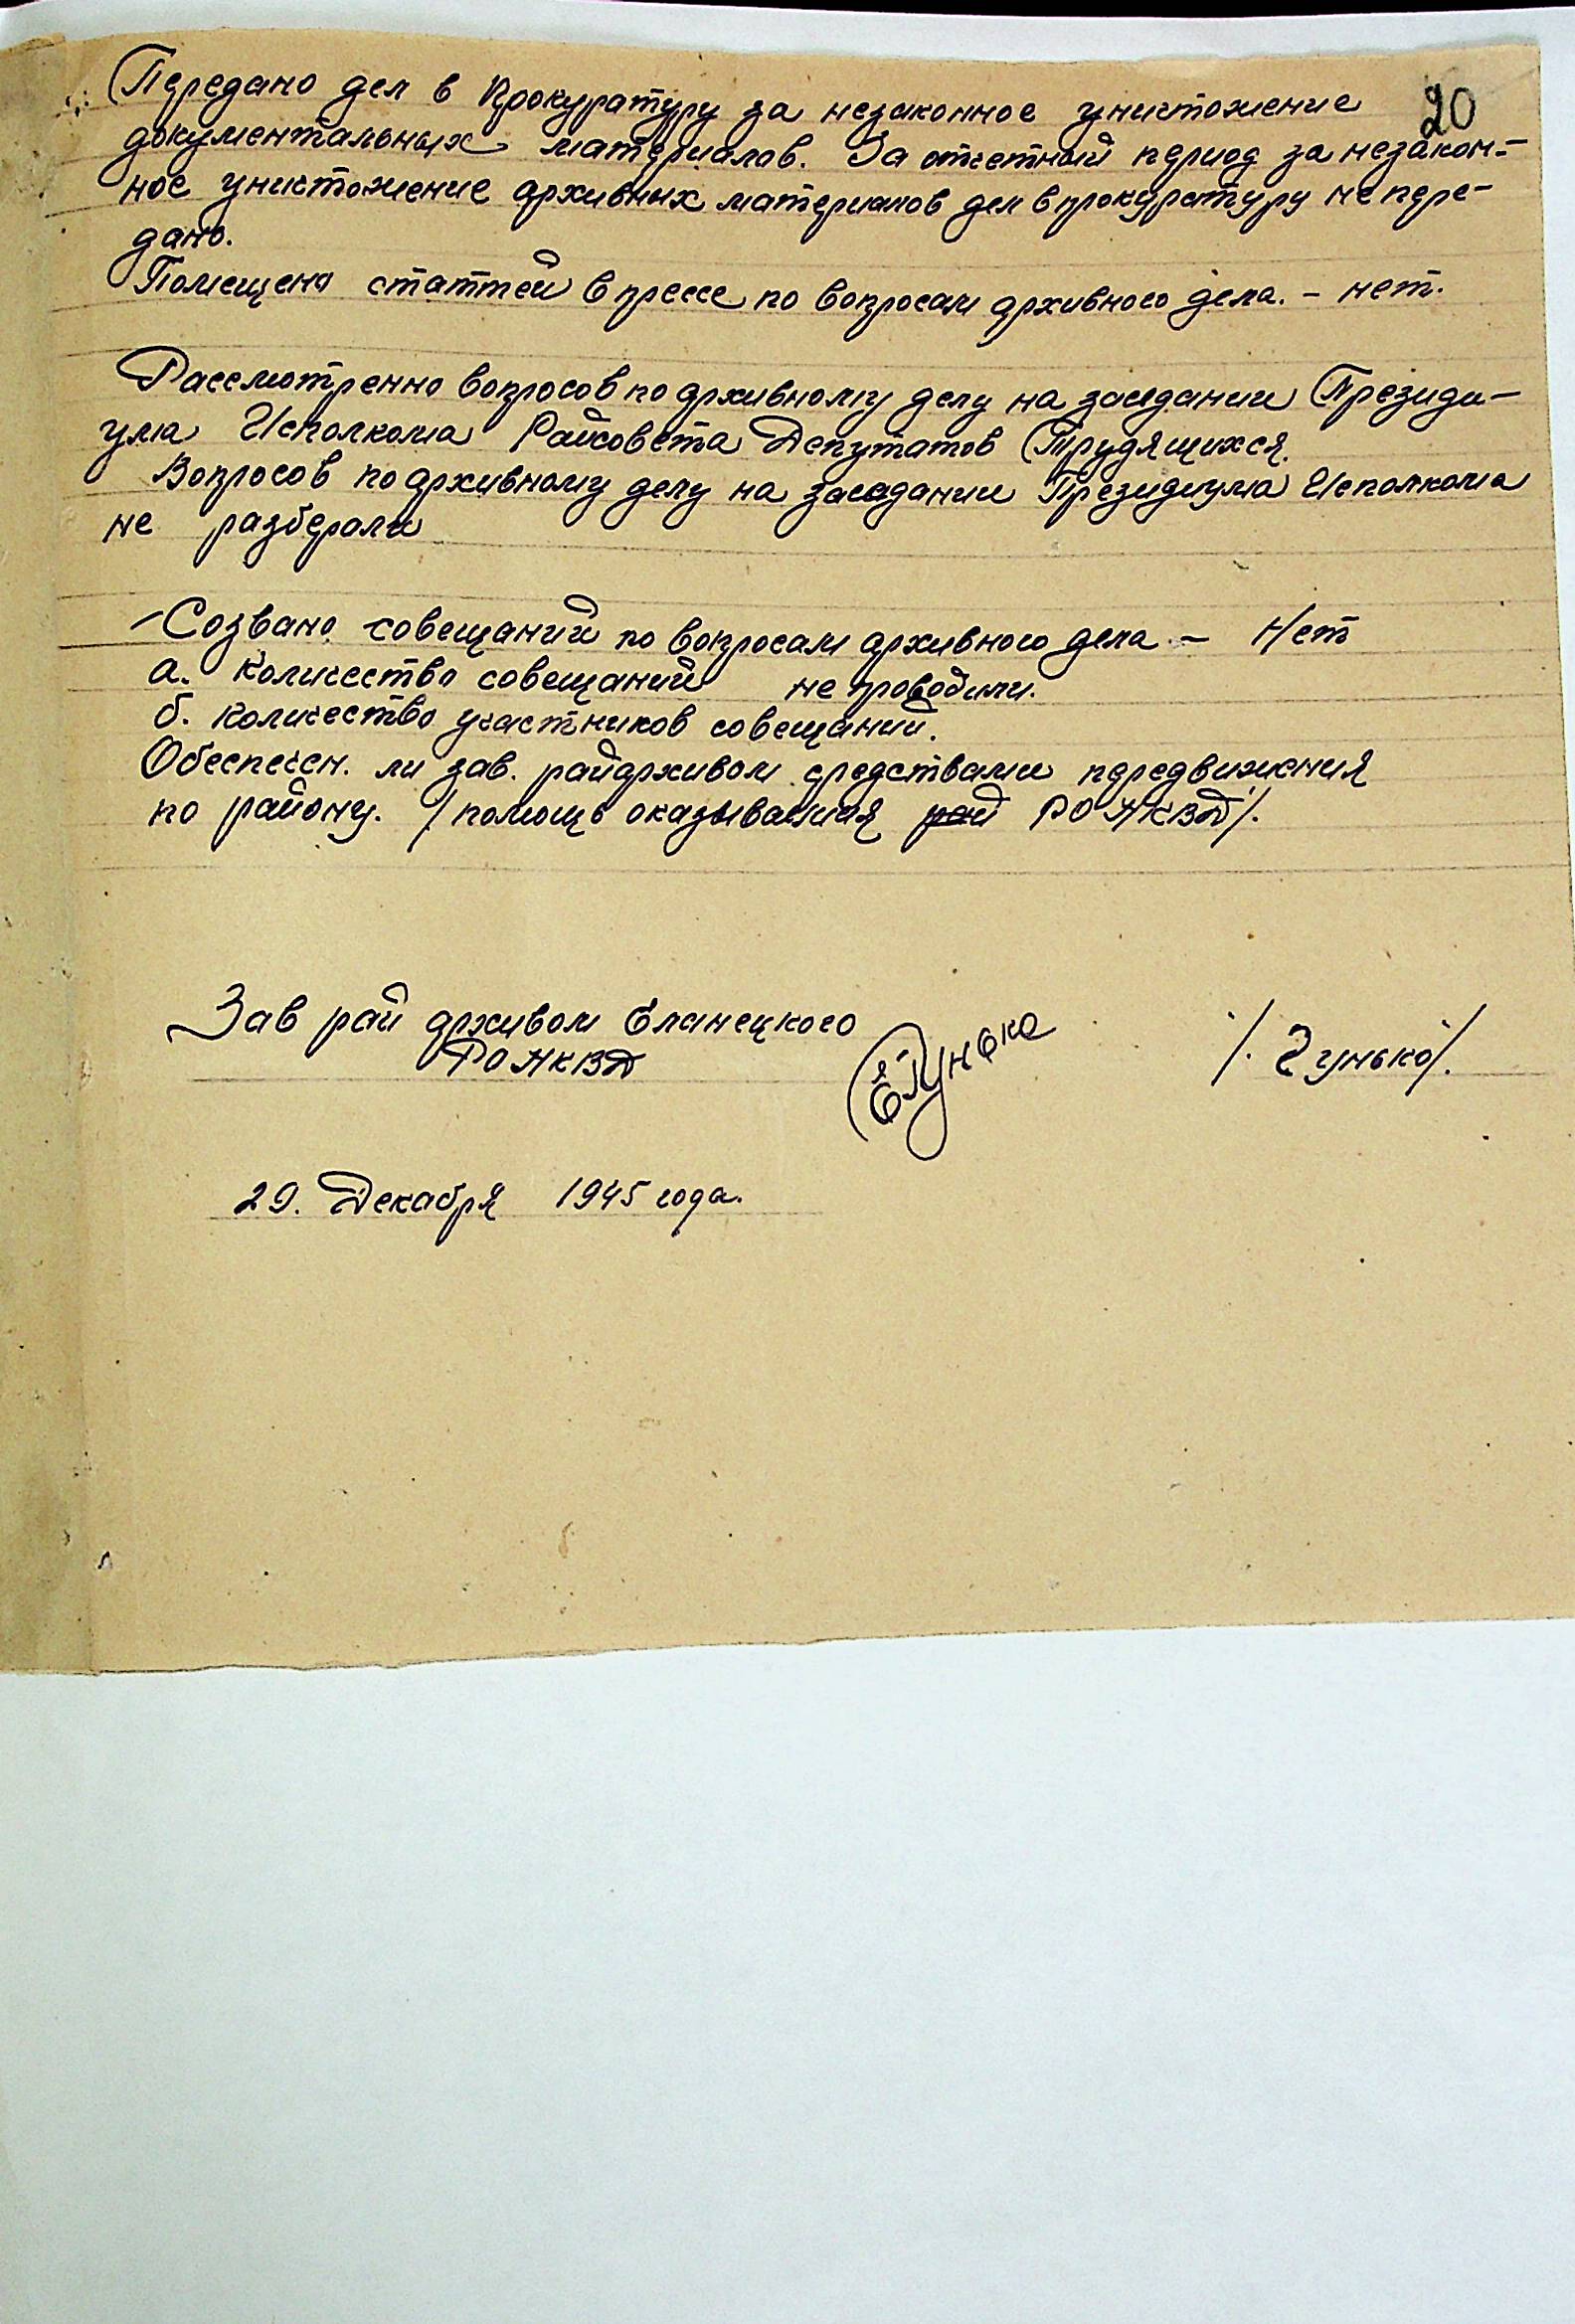 20
Передано дел в Прокуратуру за незаконное уничтожение
документальных материалов. За отчетный период за незакон-
ное уничтожение архивных материалов дел в прокуратуру не пере-
дано.
Помещено статтей в прессе по вопросам архивного дела. - нет.
Рассмотренно вопросов по архивному делу на заседании Президи-
ума Исполкома Райсовета Депутатов Трудящихся.
Вопросов по архивному делу на заседании Президиума Исполкома
не разберали
Созвано совещаний по вопросам архивного дела - Нет
а. Количество совещаний не проводили.
б. Количество участников совещаний.
Обеспечен. ли зав. райархивом средствами передвижения
по району. /помощь оказываемая рай РО НКВД/.
Зав рай архивом Еланецкого
РО НКВД
/. Гунько/.
29. Декабря 1945 года.